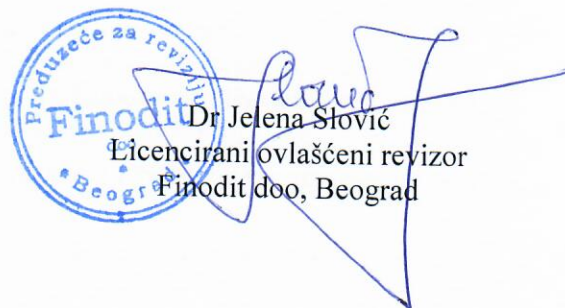 Preduzeće za reviziju
Finodit
doo
Beograd
Dr Jelena Slović
Licencirani ovlašćeni revizor
Finodit doo, Beograd